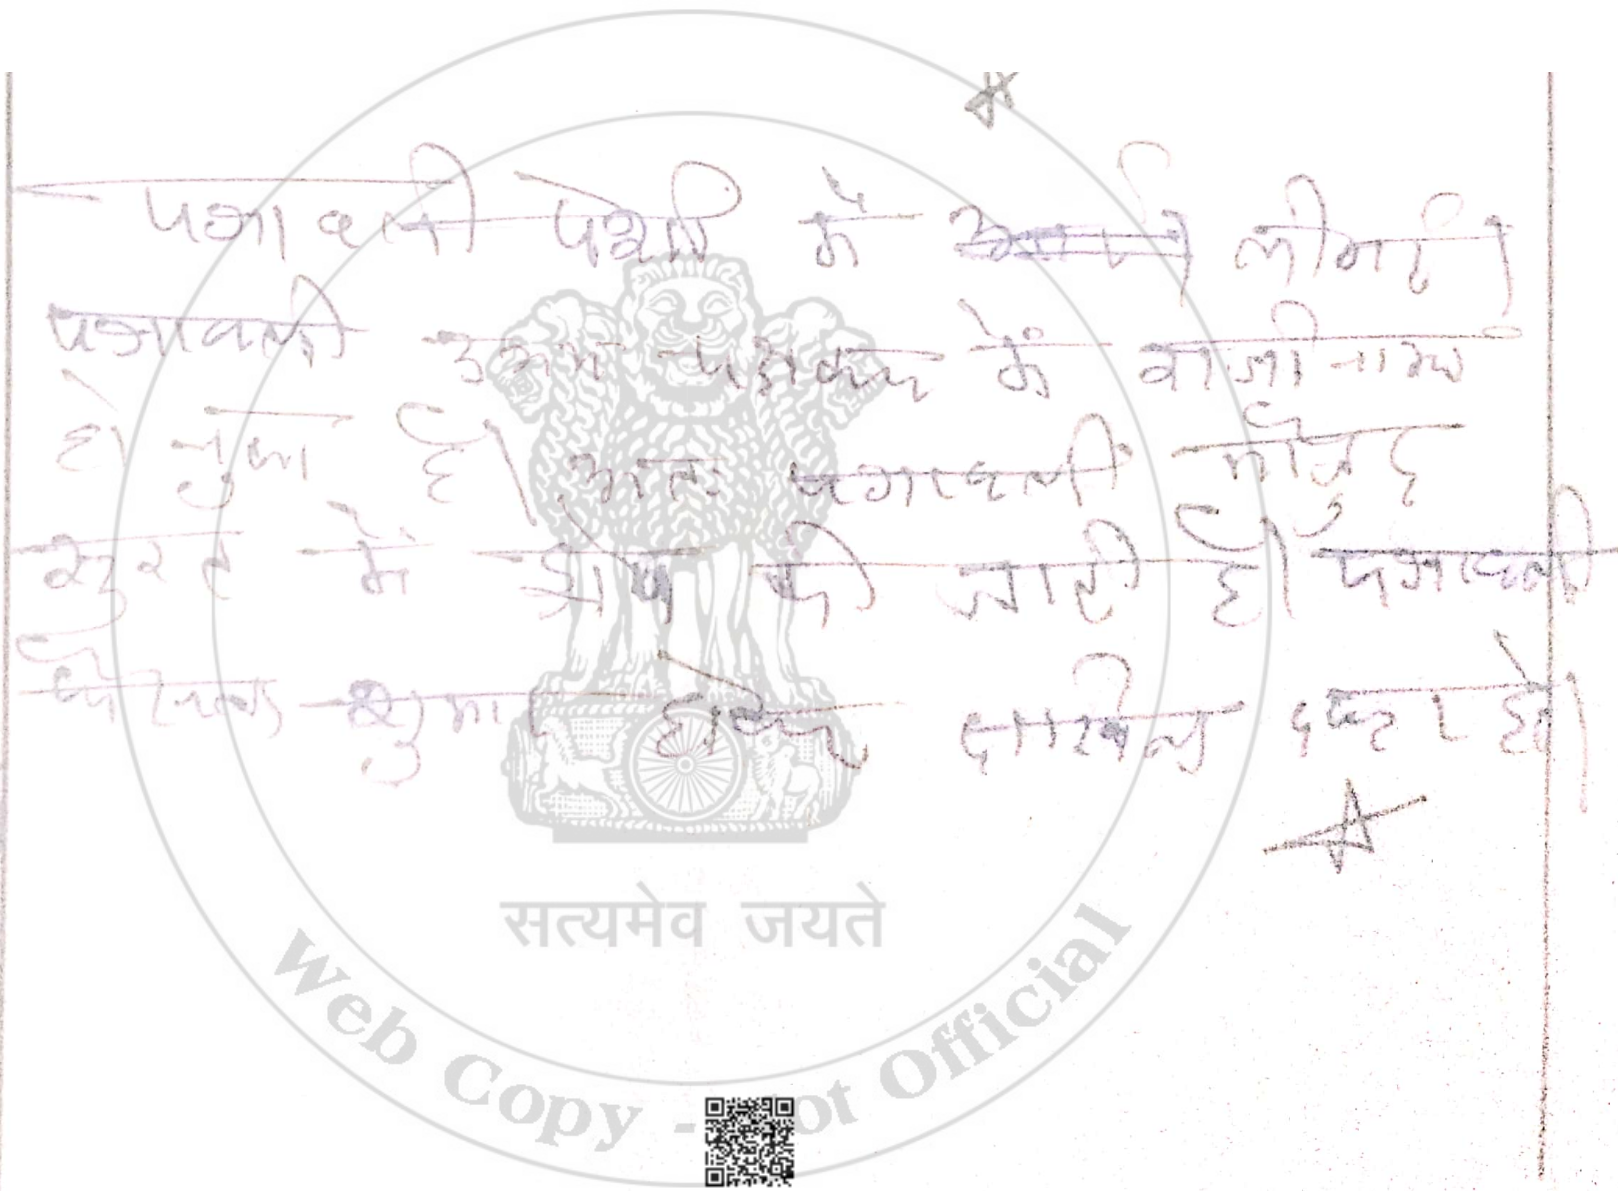 पत्रावली पेशी में ली गई।
पत्रावली उभय पक्षकार के राजीनामा
हो चुका है। अतः पत्रावली मौजूद
सुरत में ड्रोप की जाती है। पत्रावली
फैसल शुमार होकर दाखिल दफ्तर हो।
सत्यमेव जयते
Web Copy - Not Official